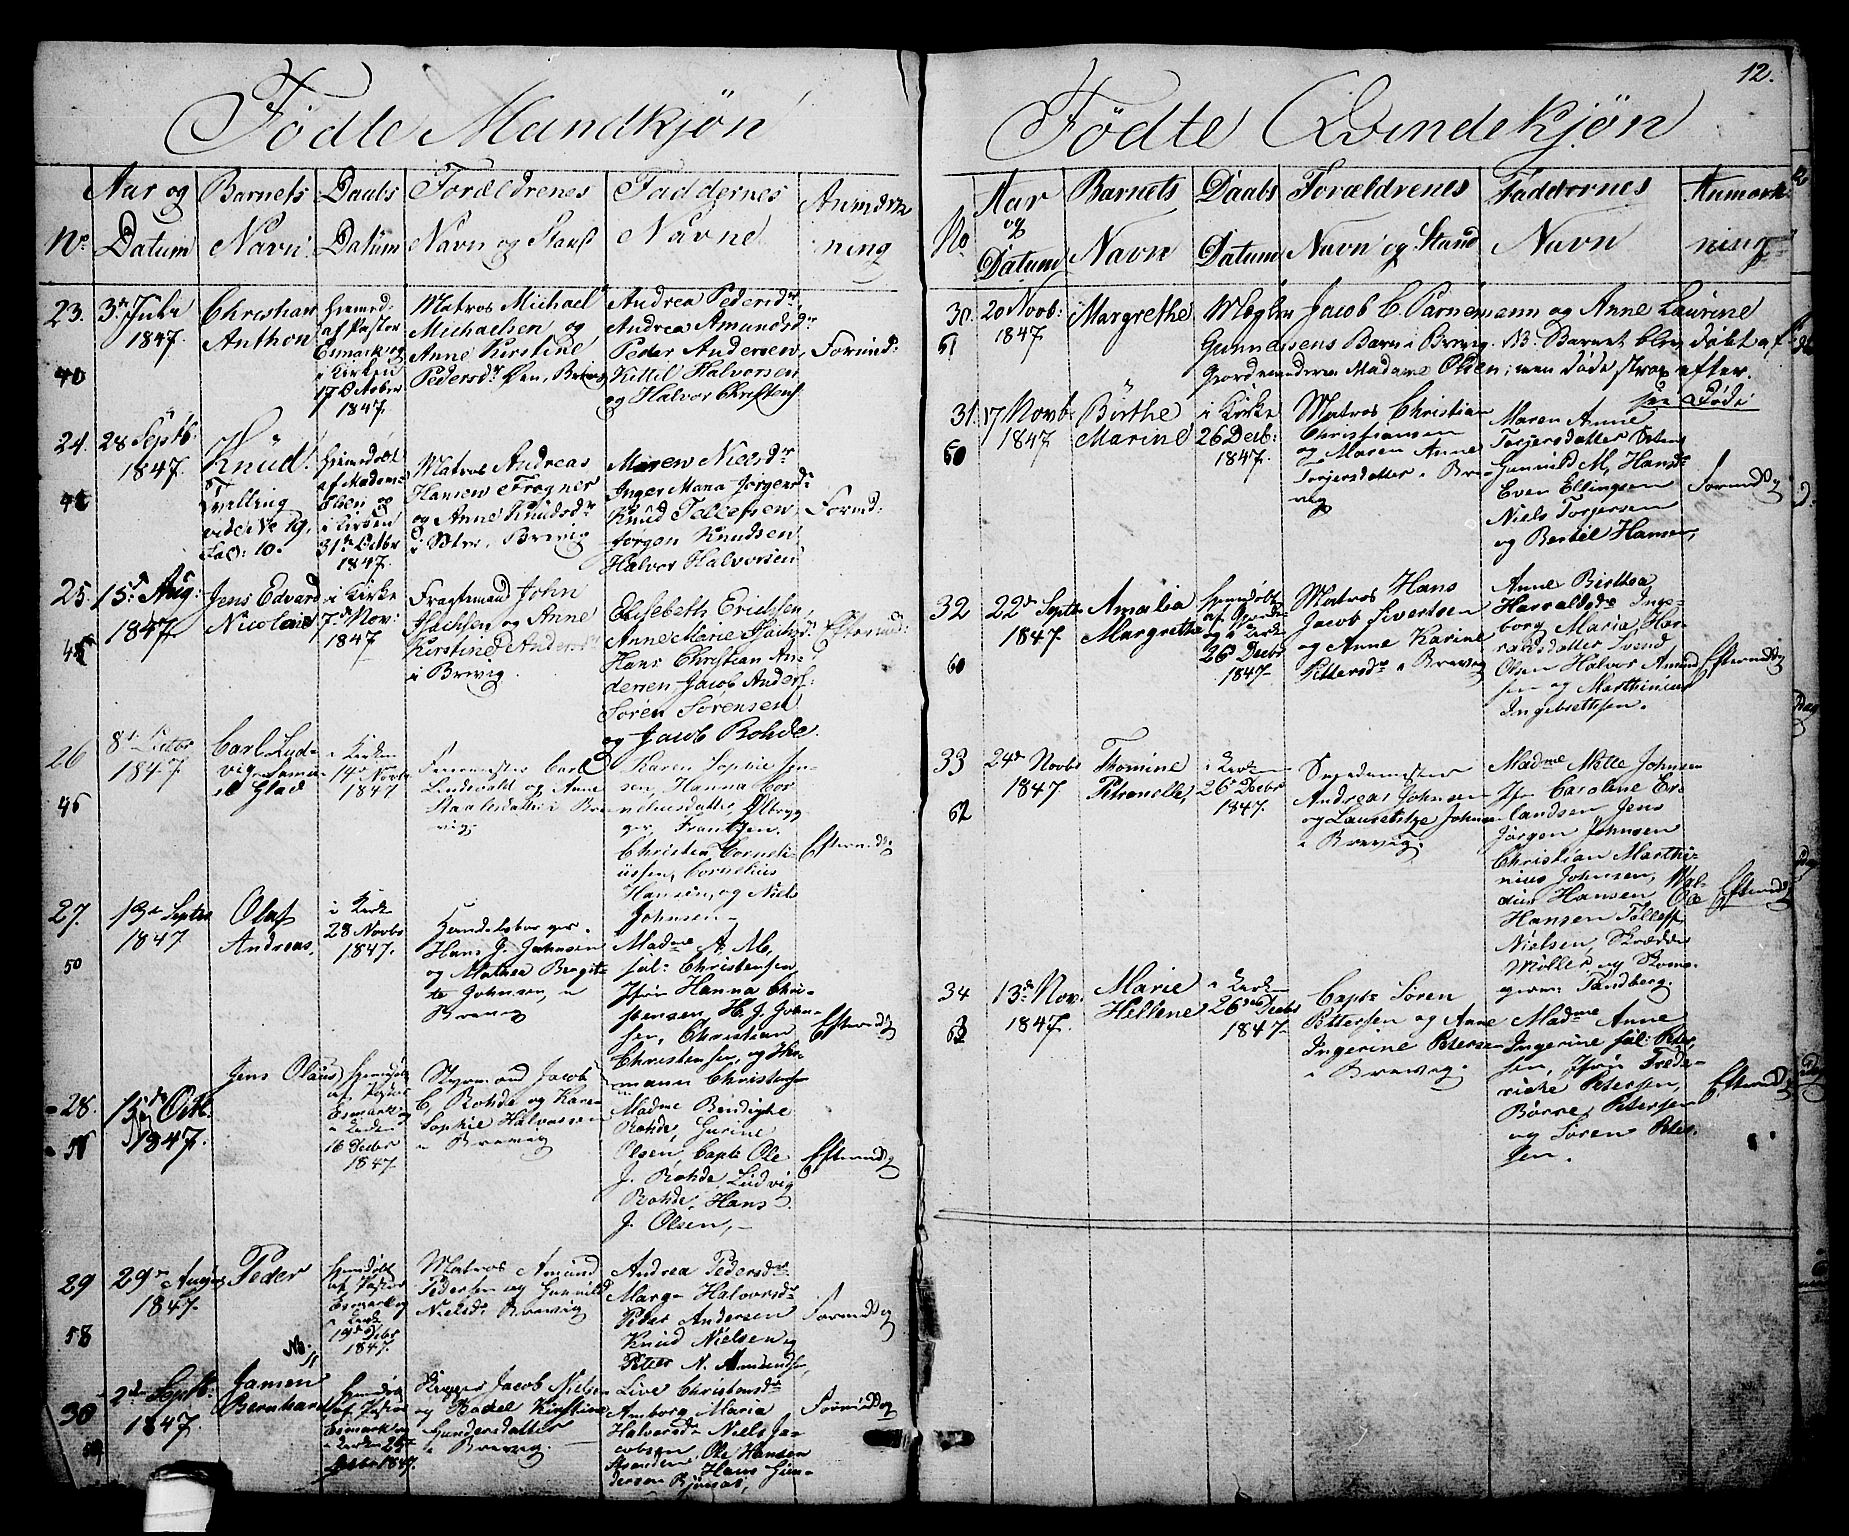 12.
Födte Mandkjön
Aar og Datum
Barnets Navn
Daabs Datum
Forældrenes Navn og Stand
Faddernes Navne
Anmærkning
No
23.
40
3de Juli
1847.
Christian
Anthon
Hiemd:
af Pastor
Esmark og
i Kirken
17 October
1847.
Matros Michael
Michaelsen og
Anne Kirstine
Pedersdr Øen, Brevig
Andrea Pedersdr,
Andrea Amundsdr
Peder Andersen,
Kittil Halvorsen
og Halvor Christens
Formid:
24.
28 Septb
1847.
Knud!
Tvilling
vide No 19.
Fol: 10.
Hiemdöbt
af Madame
Olsen og
i Kirken
31te Octbr
1847.
Matros Andreas
Hansen Fragner
og Anne Knudsdr
Brevig
Maren Nielsdr
Inger Maria Jörgensdr
Knud Tollefsen
Jörgen Knudsen
Halvor Halvorsen
Formd:
25.
15de Aug:
1847.
Jens Edvard
Nicolai
i Kirke
7de Nov:
1847.
Fragtemand John
Isachsen og Anne
Kirstine Andersdr
i Brevig.
Elisebeth Erichsen,
Anne Marie Isachsdr
Hans Christian An-
dersen Jacob Anders:
Sören Sörensen
og Jacob Rohde.
Eftermid:
26
46
8de Octbr
1847
Carl Lud-
vig
Glad
i Kirken
14de Novbr
1847
Carl
Lindevald og Anne
i Bre
vig.
Karen Sophie Jen-
sen, Hanna Cor-
neliusdatter,
Frantzen,
Christen Corneli-
ussen, Cornelius
Hansen, og Niels
Johnsen
Eftermdg
27.
50
19de Septbr
1847.
Olaf
Andreas,
i Kirke
28 Novbr
1847.
Handelsborger
Hans J. Johnsen
og Mathea Bergit-
te Johnsen, i
Brevig
Madme A. M.
sal: Christensen
Jfr Hanna Chri-
stensen, H. J. John-
sen, Christian
Christensen, og Her-
mann Christensen
Eftermdg
28.
13de Octb.
1847.
Jens Olaus
Hiemdöbt
af Pastor
Esmark og
i Kirken
16 Decbr
1847.
Styrmand Jacob
C. Rohde og Karen
Sophie Halvorsen
i Brevig
Madme Bendighe
Rohde, Gurine
Olsen, Capt Ole
J. Rohde, Ludvig
Rohde, Hans
J. Olsen,
Eftermdg
29
58
29de August
1847.
Peder
Hiemdöbt
af Pastor
Esmark og
i Kirke
19de Decbr
1847.
Matros Amund
Pedersen og Gunnild
Nielsdr Brevig
Andrea Pedersdr
Halvorsdr
Peder Andersen
Knud Nielsen og
Petter N. Amundsen,
Formdg
30
2de Septb:
1847.
Jamen
Bernhard
Hiemdöbt
af Pastor
Esmark og
i Kirke 25de
Decbr 1847.
Jacob Nielsen
og Rackel Kirstine
Gundersdatter
i Brevig.
Live Christensdr
Amborg Maria
Halvorsdr Niels Ja-
cobsen, Ole Hansen
Hans Gun-
dersen
Formidg
Födte Qvindekjön
No
Aar og Datum
Barnets Navn
Daabs Datum
Forældrenes Navn og Stand
Faddernes Navn
Anmærkning
30.
51
20 Novb:
1847.
Margrethe
Mægler Jacob C. Parnemann og Anne Laurine
Gunnersens Barn i Brevig. NB. Barnet blev døbt af
Gjordemoderen Madame Olsen; men døde strax efter.
see Døde
31.
17 Novb
1847.
Birthe
Marine
i Kirke
26 Decb:
1847.
Matros Christian
Christiansen
og Maren Anne
Torjersdatter i Bre-
vig
Maren Anne
Torjersdatter
Gunild M. Hansdr
Even Ellingsen
Niels Torjersen
og Bertel Hansen,
Formidg
32
60
22de Septbr
1847.
Amalia
Margrethe
Hiemdöbt
og i Kirke
26 Decbr
1847.
Matros Hans
Jacob Sivertsen
og Anne Karine
Pettersdr i Brevig
Anne Birthea
Harraldsdr Inge-
borg Maria Har-
raldsdatter Svend
Olsen Halvor Amund
sen og Marthinius
Ingebrethsen.
Eftermidg
33
62
24de Novbr
1847
Thomine
Petronelle,
i Kirke
26 Decbr
1847.
Andreas Johnsen
og Johnsen
i Brevig.
Madme Mette Johnsen
Jfr Caroline Er-
landsen Jens
Jörgen Johnsen
Christian Marthi-
nius Johnsen,
Hansen Ole
Hansen Tollefs
Nielsen,
Möller, og
Tandberg.
Eftermdg
34
13de Nov.
1847.
Marie
Hellene
i Kirken
26de Decbr
1847.
Capt: Sören
Pettersen og Anne
Ingerine Petersen
i Brevig.
Madme Anne
Ingerine sal: Peter-
sen, Jfr Frede-
rikke Petersen,
Börre Petersen
og Sören Peter-
sen.
Eftermdg